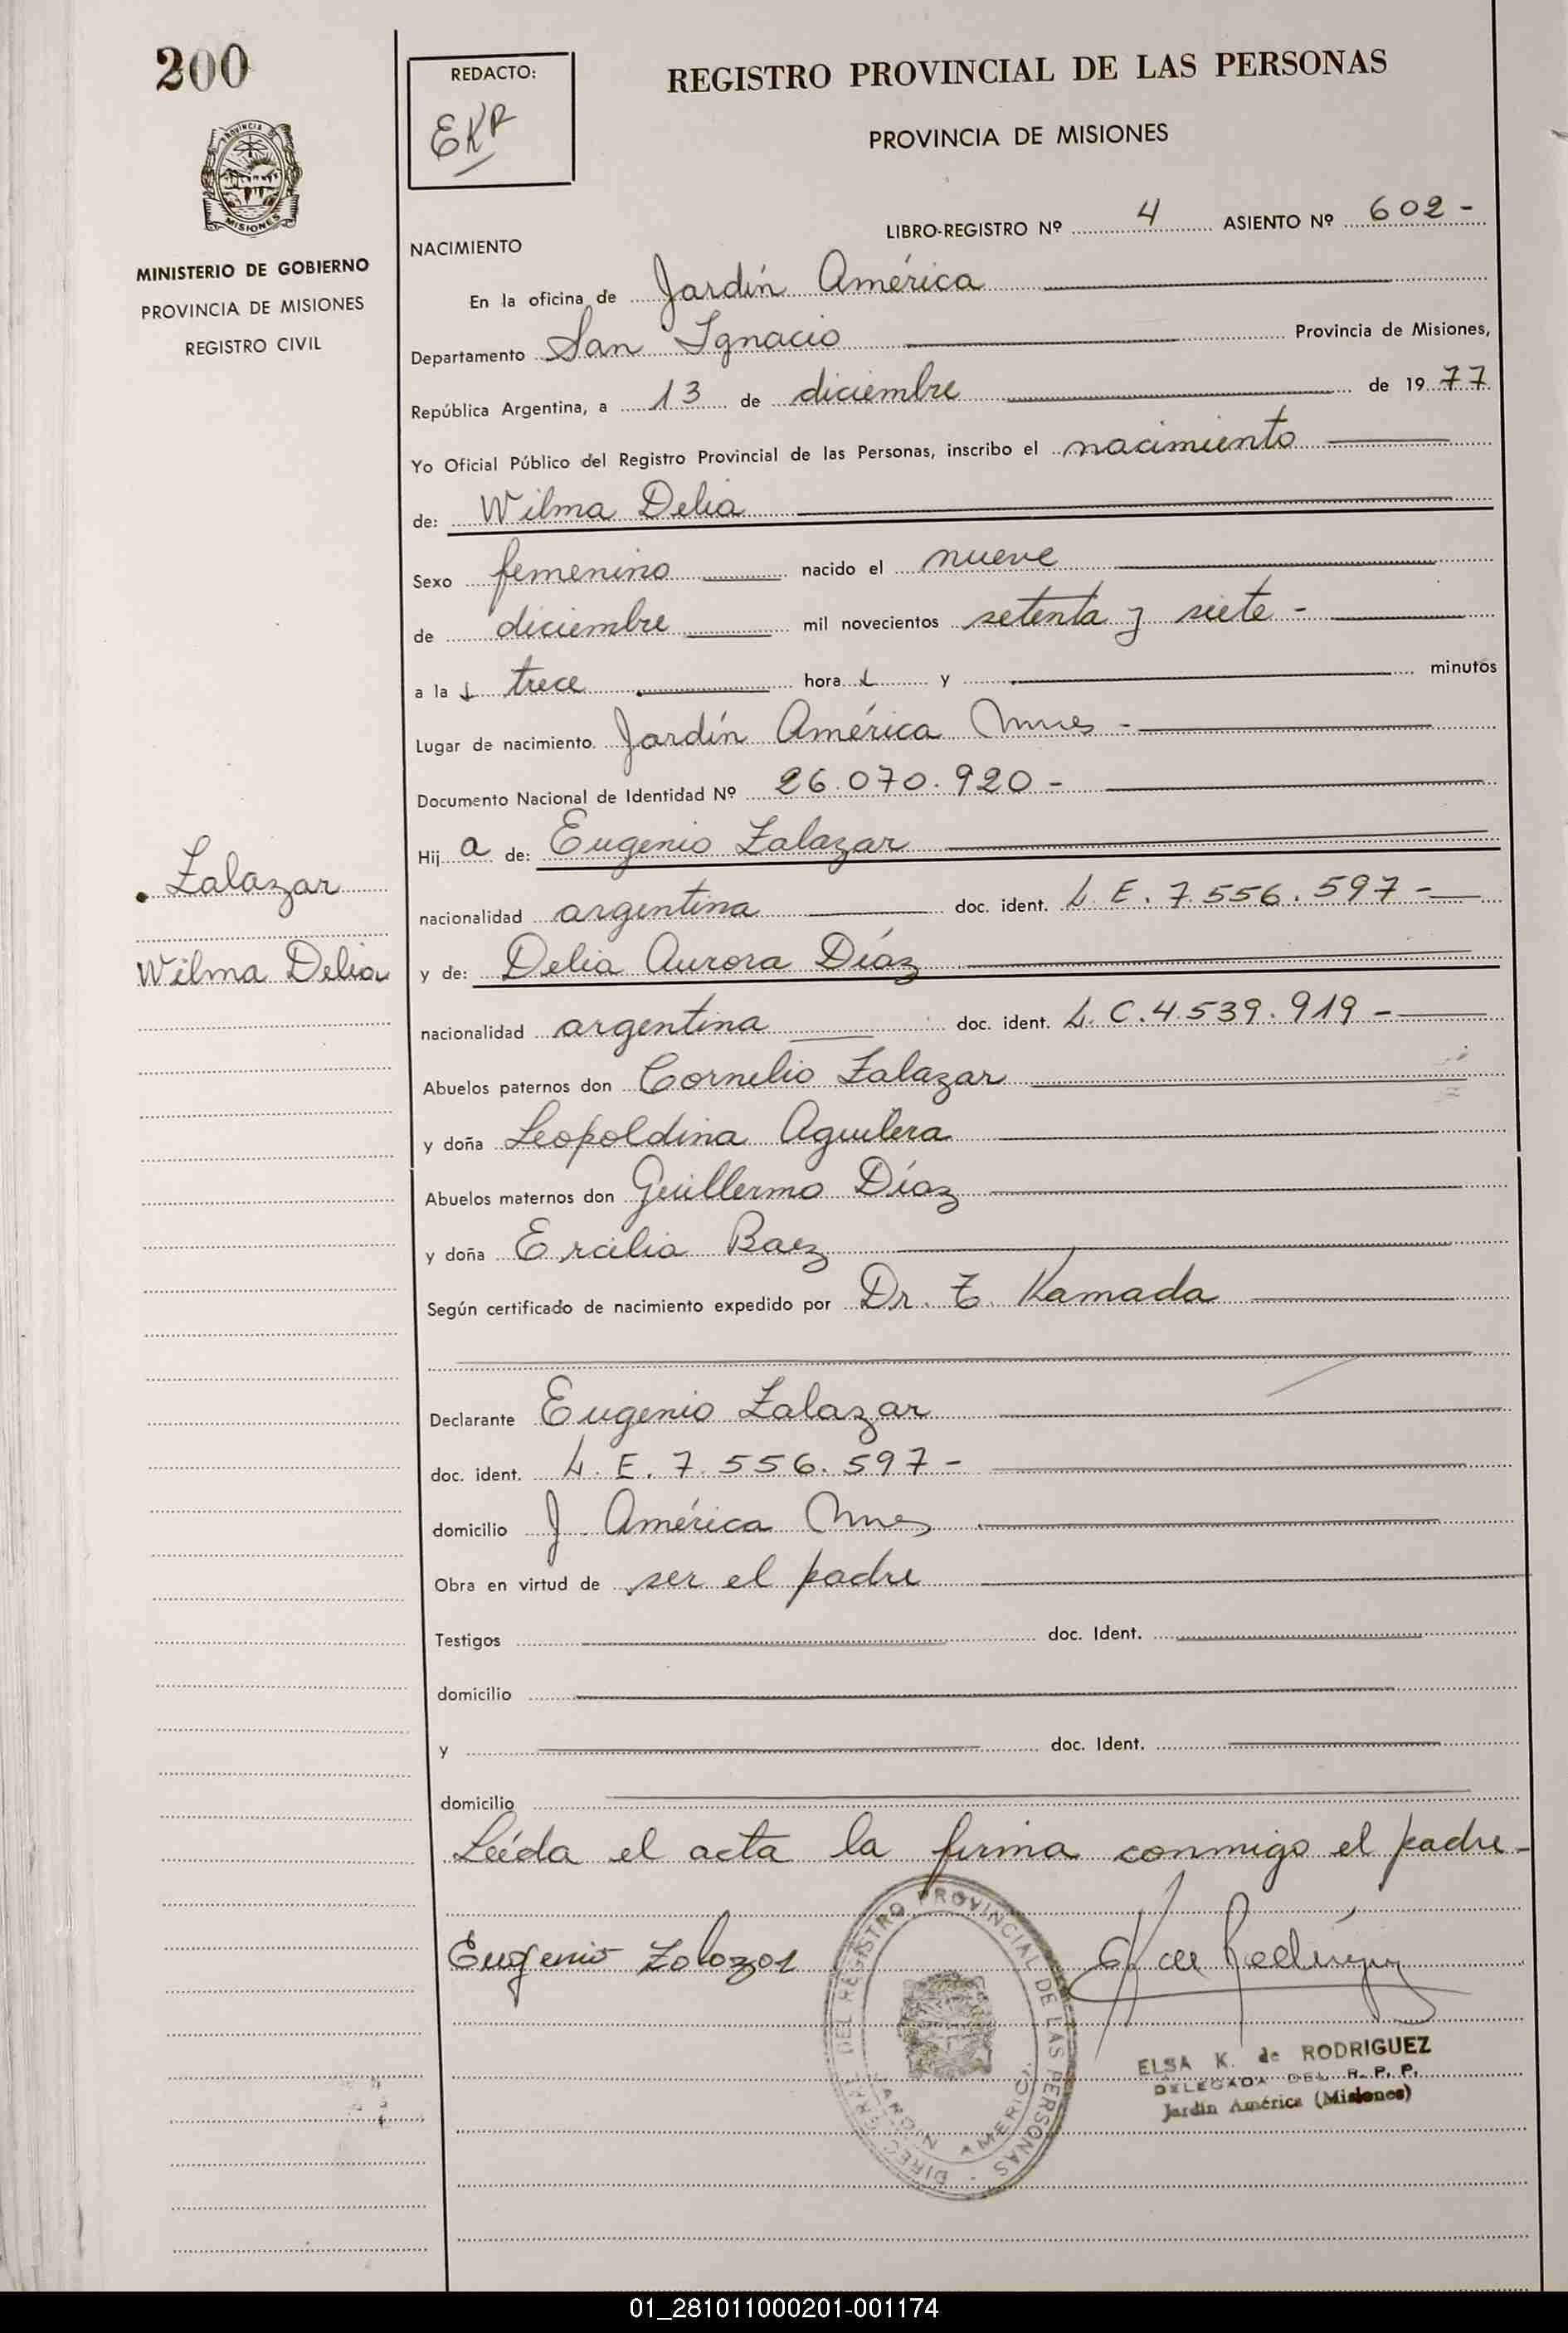 200
REDACTO:
EKR
REGISTRO PROVINCIAL DE LAS PERSONAS
PROVINCIA DE MISIONES
PROVINCIA DE
MISIONES
MINISTERIO DE GOBIERNO
PROVINCIA DE MISIONES
REGISTRO CIVIL
LIBRO-REGISTRO Nº 4 ASIENTO Nº 602 -
NACIMIENTO
En la oficina de Jardín América
Departamento San Ignacio Provincia de Misiones,
República Argentina, a 13 de diciembre de 1977
Yo Oficial Público del Registro Provincial de las Personas, inscribo el nacimiento
de: Wilma Delia
Sexo femenino nacido el nueve
de diciembre mil novecientos setenta y siete -
a la s trece hora s y minutos
Lugar de nacimiento Jardín América Mnes -
Documento Nacional de Identidad Nº 26.070.920 -
Hij a de: Eugenio Zalazar
Zalazar
nacionalidad argentina doc. ident. L.E. 7.556.597 -
Wilma Delia
y de: Delia Aurora Díaz
nacionalidad argentina doc. ident. L.C. 4.539.919 -
Abuelos paternos don Cornelio Zalazar
y doña Leopoldina Aguilera
Abuelos maternos don Guillermo Díaz
y doña Ercilia Baez
Según certificado de nacimiento expedido por Dr. T. Kamada
Declarante Eugenio Zalazar
doc. ident. L.E. 7.556.597 -
domicilio J. América Mnes
Obra en virtud de ser el padre
Testigos doc. Ident.
domicilio
y doc. Ident.
domicilio
Leída el acta la firma conmigo el padre -
Eugenio Zalazar
DIREC. GRAL. DEL REGISTRO PROVINCIAL DE LAS PERSONAS
JARDIN AMERICA
EK de Rodríguez
ELSA K. de RODRIGUEZ
DELEGADA DEL R. P. P.
Jardín América (Misiones)
01_281011000201-001174